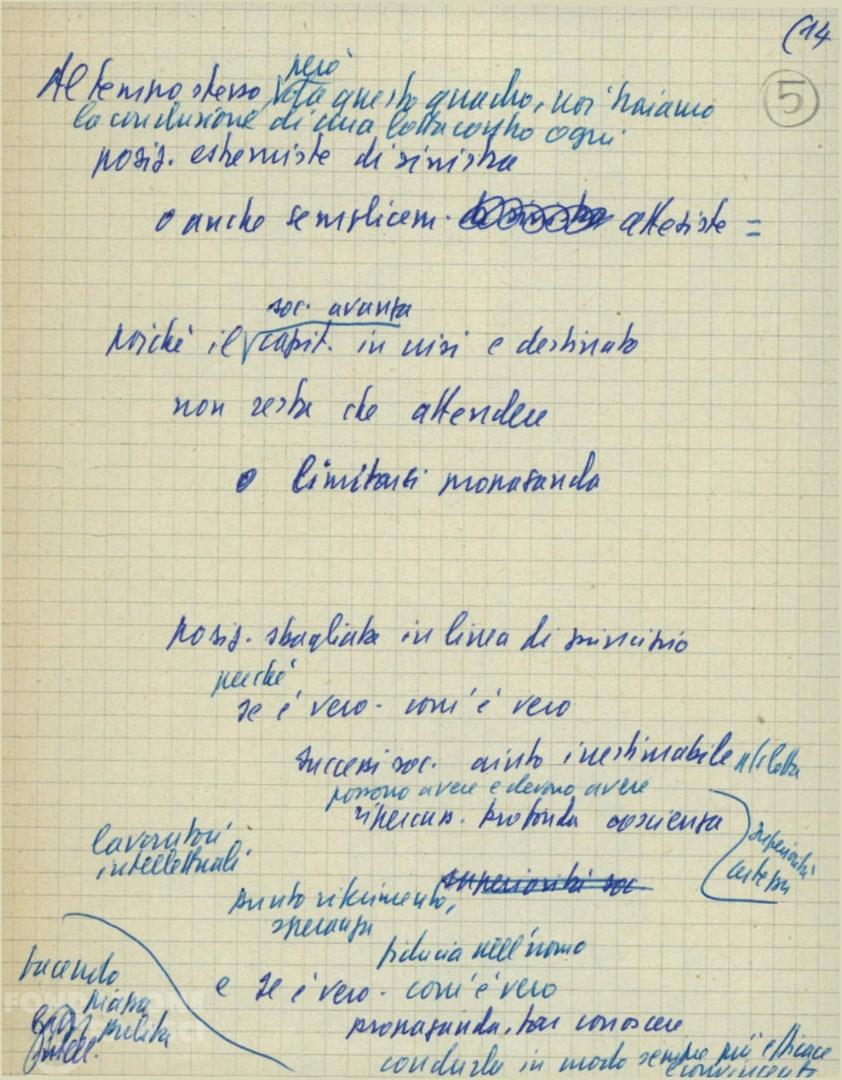 (14
5
però
Al tempo stesso, tutto questo quadro, noi traiamo
la conclusione di una lotta contro ogni
posiz. estremiste di sinistra
o anche semplicem. attesiste =
soc. avanza
poiché il capit. in crisi e destinato
non resta che attendere
o limitarsi propaganda
posiz. sbagliate in linea di principio
perché
se è vero - com'è vero
successi soc. aiuto inestimabile alla lotta
possono avere e devono avere
ripercuss. profonda coscienza
superiorità
lavoratori
intellettuali
superiorità soc
punto riferimento,
speranza
fiducia nell'uomo
facendo
piazza
pulita
e se è vero - com'è vero
propaganda, far conoscere
condurla in modo sempre più efficace
convincente